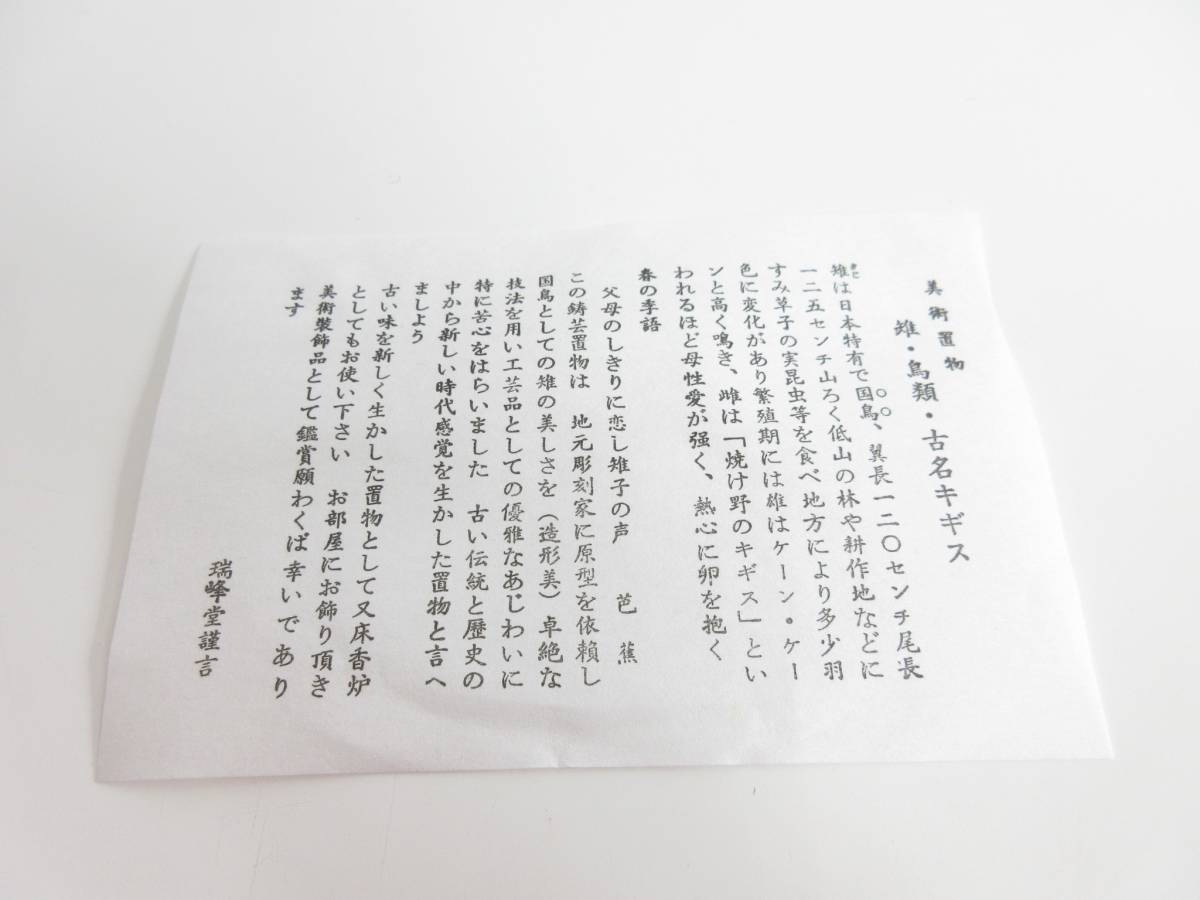 美術置物
雉・鳥類・古名キギス
雉は日本特有で国鳥、翼長一二〇センチ尾長
一二五センチ山ろく低山の林や耕作地などに
すみ草子の実昆虫等を食べ地方により多少羽
色に変化があり繁殖期には雄はケーン・ケー
ンと高く鳴き、雌は「焼け野のキギス」とい
われるほど母性愛が强く、熱心に卵を抱く
春の季語
父母のしきりに恋し雉子の声 芭蕉
この鋳芸置物は 地元彫刻家に原型を依賴し
国鳥としての雉の美しさを(造形美)卓絶な
技法を用い工芸品としての優雅なあじわいに
特に苦心をはらいました 古い伝統と歴史の
中から新しい時代感覚を生かした置物と言へ
ましよう
古い味を新しく生かした置物として又床香炉
としてもお使い下さい お部屋にお飾り頂き
美術裝飾品として鑑賞願わくば幸いであり
ます
瑞峰堂謹言